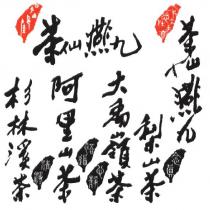 茶仙燃九
茶仙燃九
梨山茶
大禹嶺茶
阿里山茶
杉林溪茶